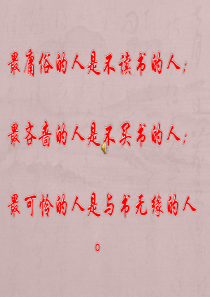 最庸俗的人是不读书的人；
最吝啬的人是不买书的人；
最可怜的人是与书无缘的人
。